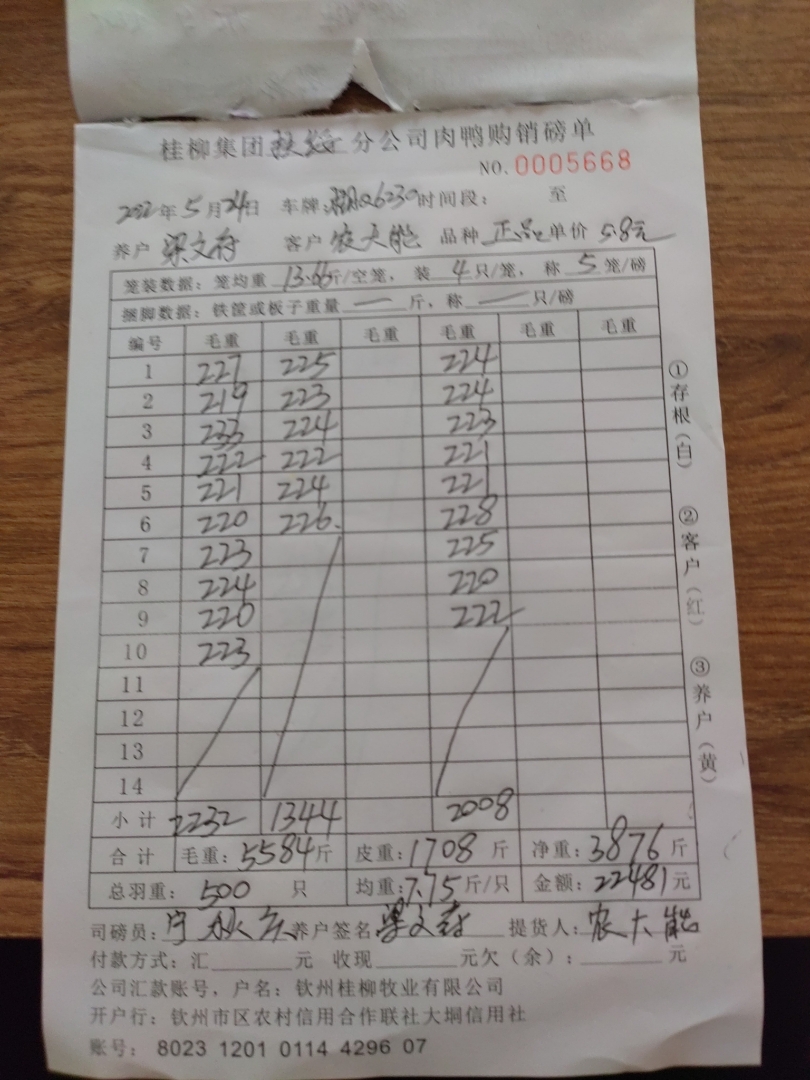 桂柳集团 分公司肉鸭购销磅单
NO. 0005668
2022年5月24日 车牌: Q6230 时间段: 至
养户 梁文存 客户 农大能 品种 正品 单价 5.8元
笼装数据: 笼均重 13.66斤/空笼, 装 4只/笼, 称 5笼/磅
捆脚数据: 铁筐或板子重量 — 斤, 称 — 只/磅
编号 毛重 毛重 毛重 毛重 毛重 毛重
1 227 225 224
2 219 223 224
3 233 224 223
4 222 222 221
5 221 224 221
6 220 226 228
7 223 225
8 224 220
9 220 222
10 223
11
12
13
14
小计 2232 1344 2008
合计 毛重: 5584斤 皮重: 1708斤 净重: 3876斤
总羽重: 500 只 均重: 7.75斤/只 金额: 22481元
司磅员: 养户签名 梁文存 提货人: 农大能
付款方式: 汇 元 收现 元欠(余): 元
公司汇款账号, 户名: 钦州桂柳牧业有限公司
开户行: 钦州市区农村信用合作联社大垌信用社
账号: 8023 1201 0114 4296 07
①存根(白) ②客户(红) ③养户(黄)